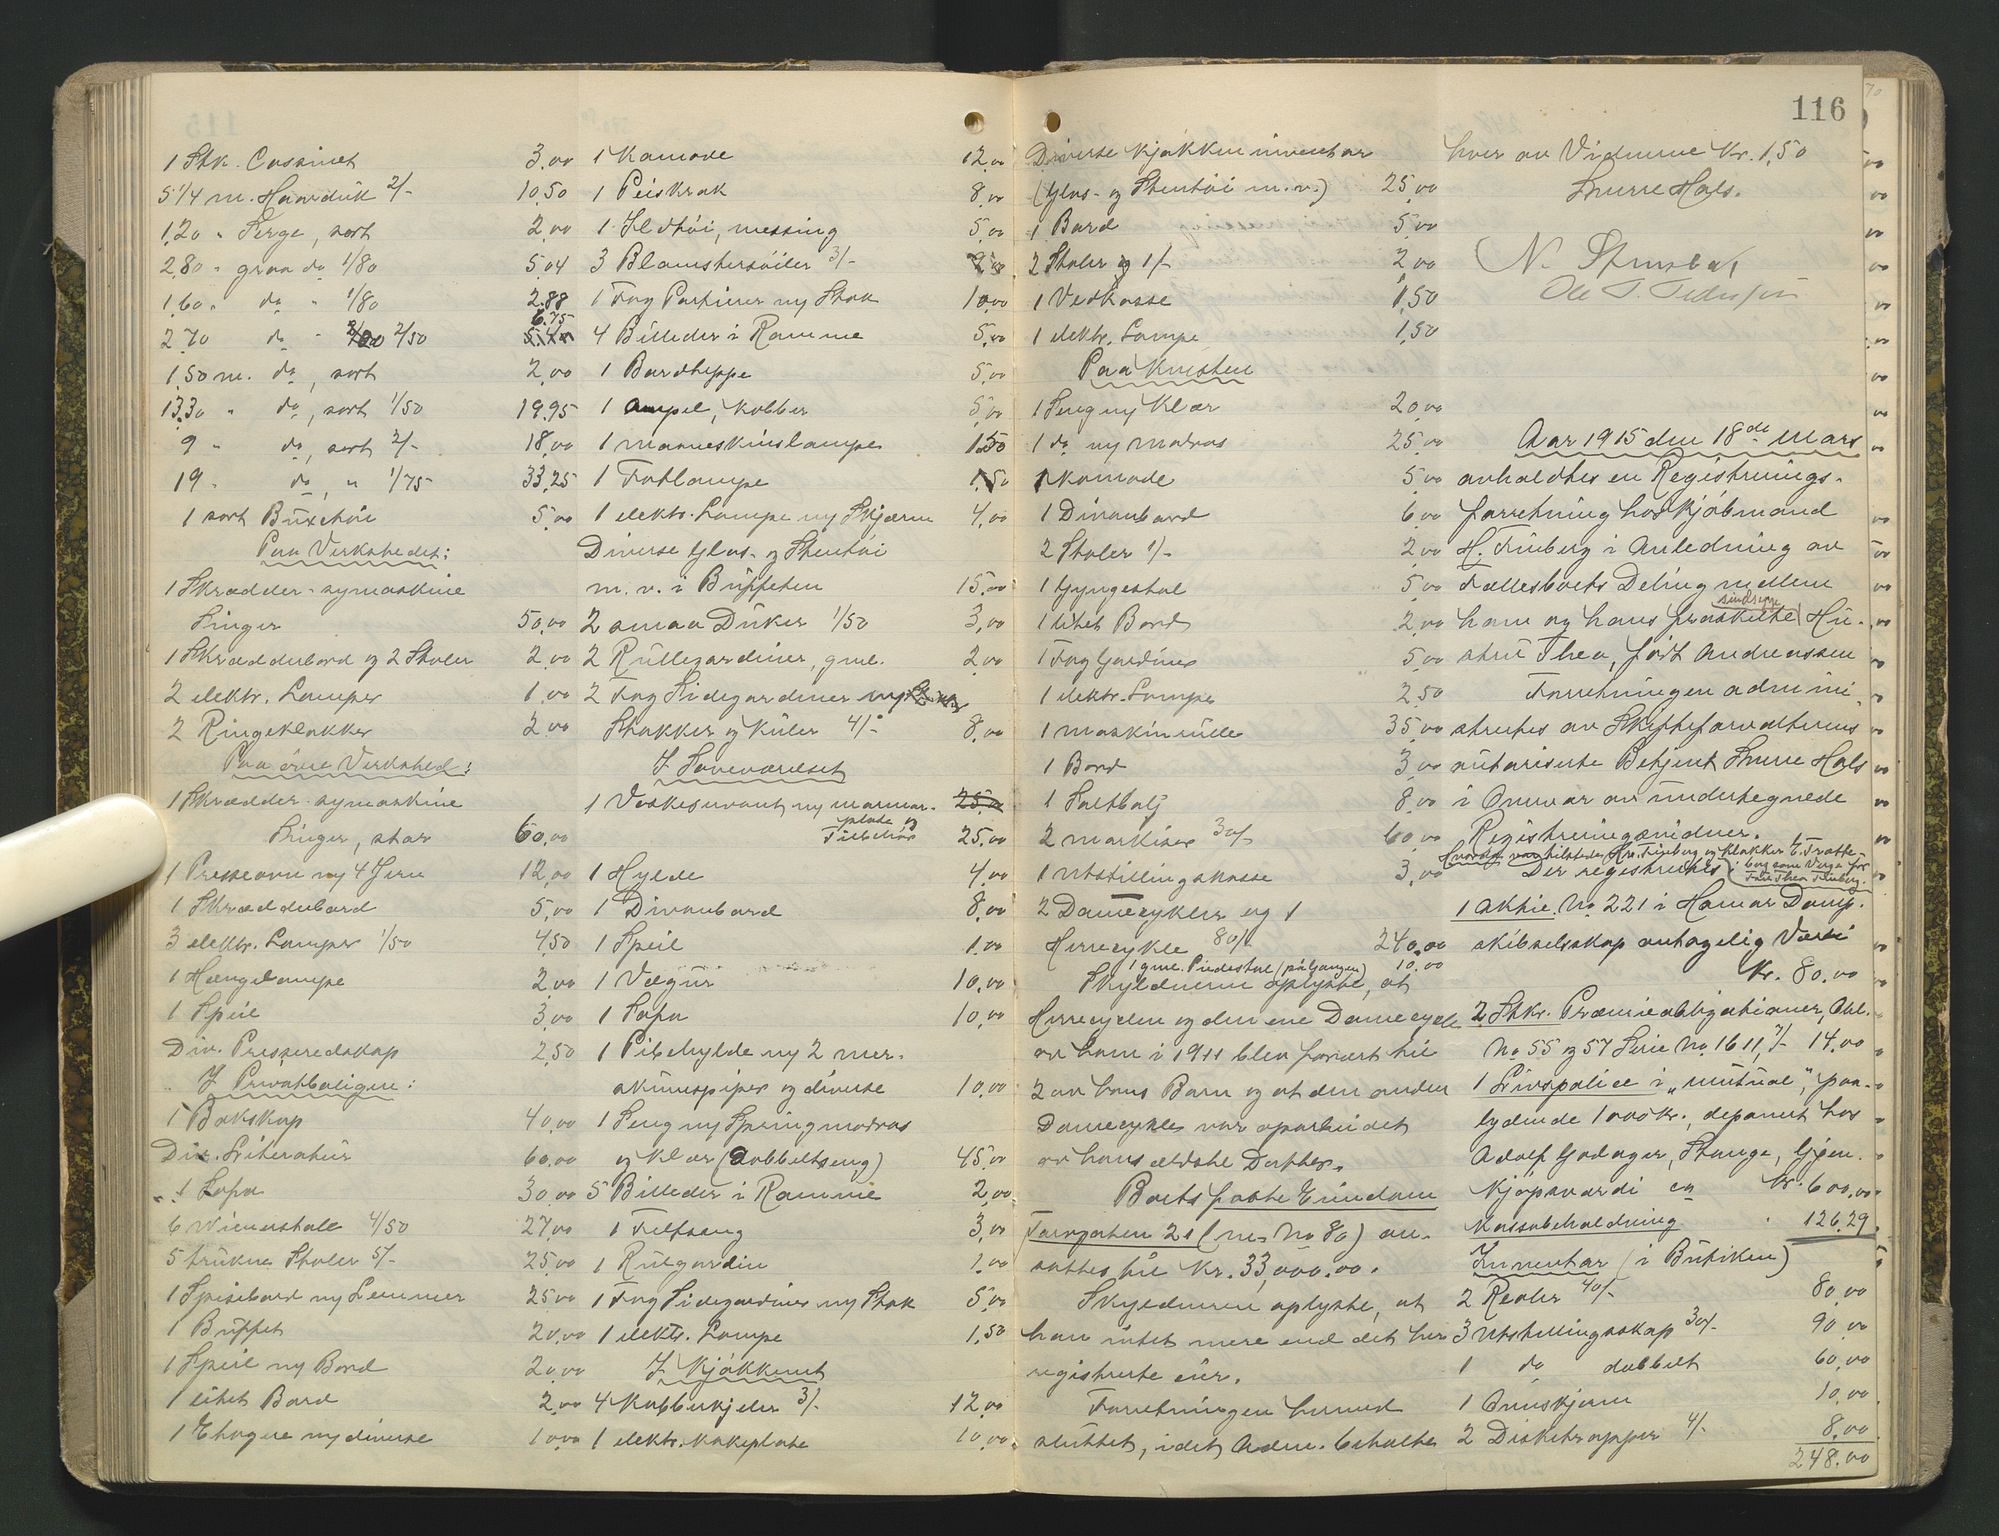 116
1 Stk. Cassinet 3,00
5 1/4 m. Haarduk 2/- 10,50
1,20 " Serge, sort 2,00
2,80 " graa do 1/80 5,04
1,60 " do " 1/80 2.88
2,70 do " 2/50 6.75
1,50 m. do, sort 2,00
13,30 " do, sort 1/50 19,95
9 " do, sort 2/- 18,00
19 " do, " 1/75 33,25
1 sort Buxetøi 5,00
Paa Verkstedet:
1 Skrædder-symaskine
Singer 50,00
1 Skrædderbord og 2 Stoler 2,00
2 elektr. Lamper 1,00
2 Ringeklokker 2,00
Paa øvre Verksted:
1 Skrædder-symaskine
Singer, stor 60,00
1 Presseovn m/ 4 Jern 12,00
1 Skrædderbord 5,00
3 elektr. Lamper 1/50 4,50
1 Hængelampe 2,00
1 Speil 3,00
Div. Presseredskap 2,50
I Privatboligen:
1 Bokskap 40,00
Div. Literatur 60,00
1 Sofa 30,00
6 Wienerstole 4/50 27,00
5 trukne Stoler 5/- 25,00
1 Spisebord m/ Lemmer 25,00
1 Buffet 20,00
1 Speil m/ Bord 20,00
1 litet Bord 2,00
1 Etagere m/ diverse 10,00
1 Komode 12,00
1 Peiskrok 8,00
1 Ildtøi, messing 5,00
3 Blomstersøiler 3/- 9,00
1 Fag Portierer m/ Stok 10,00
4 Billeder i Ramme 5,00
1 Bordteppe 5,00
1 Ampel, Kobber 5,00
1 Maaneskinslampe 1,50
1 Fotlampe 1,50
1 elektr. Lampe m/ Skjærm 4,00
Diverse Glas- og Stentøi
m. v. i Buffeten 15,00
2 smaa Duker 1/50 3,00
2 Rullegardiner, gml. 2,00
2 Fag Sidegardiner m/
Stokker og Kuler 4/- 8,00
I Soveværelset
1 Vaskeservant m/ marmor- 25,00
plate og
Tilbehør 25,00
1 Hylde 4,00
1 Divanbord 8,00
1 Speil 1,00
1 Vægur 10,00
1 Sofa 10,00
1 Pibehylde m/ 2 mer-
skumspiper og diverse 10,00
1 Seng m/ Springmadras
og Klær (Dobbeltseng) 45,00
5 Billeder i Ramme 2,00
1 Feltseng 3,00
1 Rulgardin 1,00
1 Fag Sidegardiner m/ Stok 5,00
1 elektr. Lampe 1,50
I Kjøkkenet
4 Kobberkjeler 3/- 12,00
1 elektr. Kokeplate 10,00
Diverse Kjøkkeninventar
(Glas- og Stentøi m. v.) 25,00
1 Bord 5,00
2 Stoler og 1/- 2,00
1 Vedkasse 1,50
1 elektr. Lampe 1,50
Paa Kvisten
1 Seng m/ Klær 20,00
1 do m/ Madras 25,00
1 Komode 5,00
1 Divanbord 6,00
2 Stoler 1/- 2,00
1 Gyngestol 5,00
1 litet Bord 2,00
1 Fag Gardiner 5,00
1 elektr. Lampe 2,50
1 Maskinrulle 35,00
1 Bord 3,00
1 Saltbalj 8,00
2 Markiser 30/- 60,00
1 Utstillingskasse 3,00
2 Damecykler og 1
Herrecykle 80/- 240,00
1 gml. Piedestal (på Gangen) 10.00
Skyldneren oplyste, at
Herrecyklen og den ene Damecykle
av ham i 1911 blev foræret til
2 av hans Barn og at den anden
Damecykle var oparbeidet
av hans ældste Datter.
Boets faste Eiendom
Torvgaten 21 (m. No 80) an-
sattes til Kr. 33,000.00.
Skyldneren oplyste, at
han intet mere end det her
registrerte eier.
Forretningen hermed
sluttet, idet Adm. beholdt
hver av Vidnerne Kr. 1,50
Snerre Hals.
N. Stensbak
Ole P. Pedersen
Aar 1915 den 18de Mars
avholdtes en Registrerings-
forretning hos Kjøbmand
H. Finberg i Anledning av
Fællesboets Deling mellem
sindssyge
ham og hans fraskilte Hu-
stru Thea, født Andreassen
Forretningen admini-
strertes av Skifteforvalterens
autoriserte Betjent Snerre Hals
i Overvær av undertegnede
Registreringsvidner.
Hvorda var tilstede Hr. Finberg og Klokker E. Fratte-
berg som Verge for
Fru Thea Finberg.
Der registrertes:
1 Aktie No 221 i Hamar Damp-
skibselskap antagelig Værdi
Kr. 80.00
2 Stkr. Præmieobligationer, Obl.
No 55 og 57 Serie No 1611, 7/- 14.00
1 Livspolice i "Mutual", paa-
lydende 1000 kr., deponert hos
Adolf Godager, Stange, Gjen-
kjøpsværdi ca Kr. 600,00
Kassabeholdning " 126.29
Inventar (i Butiken)
2 Reoler 40/- 80,00
3 Utstillingsskap 30/- 90,00
1 do dobbelt 60,00
1 Ovnskjerm 10,00
2 Disketrapper 4/- 8,00
248.00